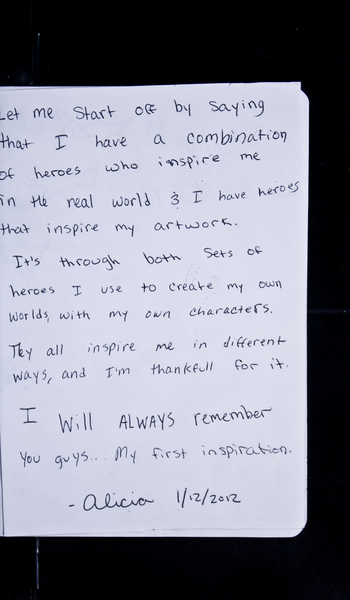 Let me start off by saying
that I have a combination
of heroes who inspire me
in the real world & I have heroes
that inspire my artwork.
It's through both sets of
heroes I use to create my own
worlds, with my own characters.
They all inspire me in different
ways, and I'm thankfull for it.
I will ALWAYS remember
you guys... My first inspiration.
- Alicia 1/12/2012